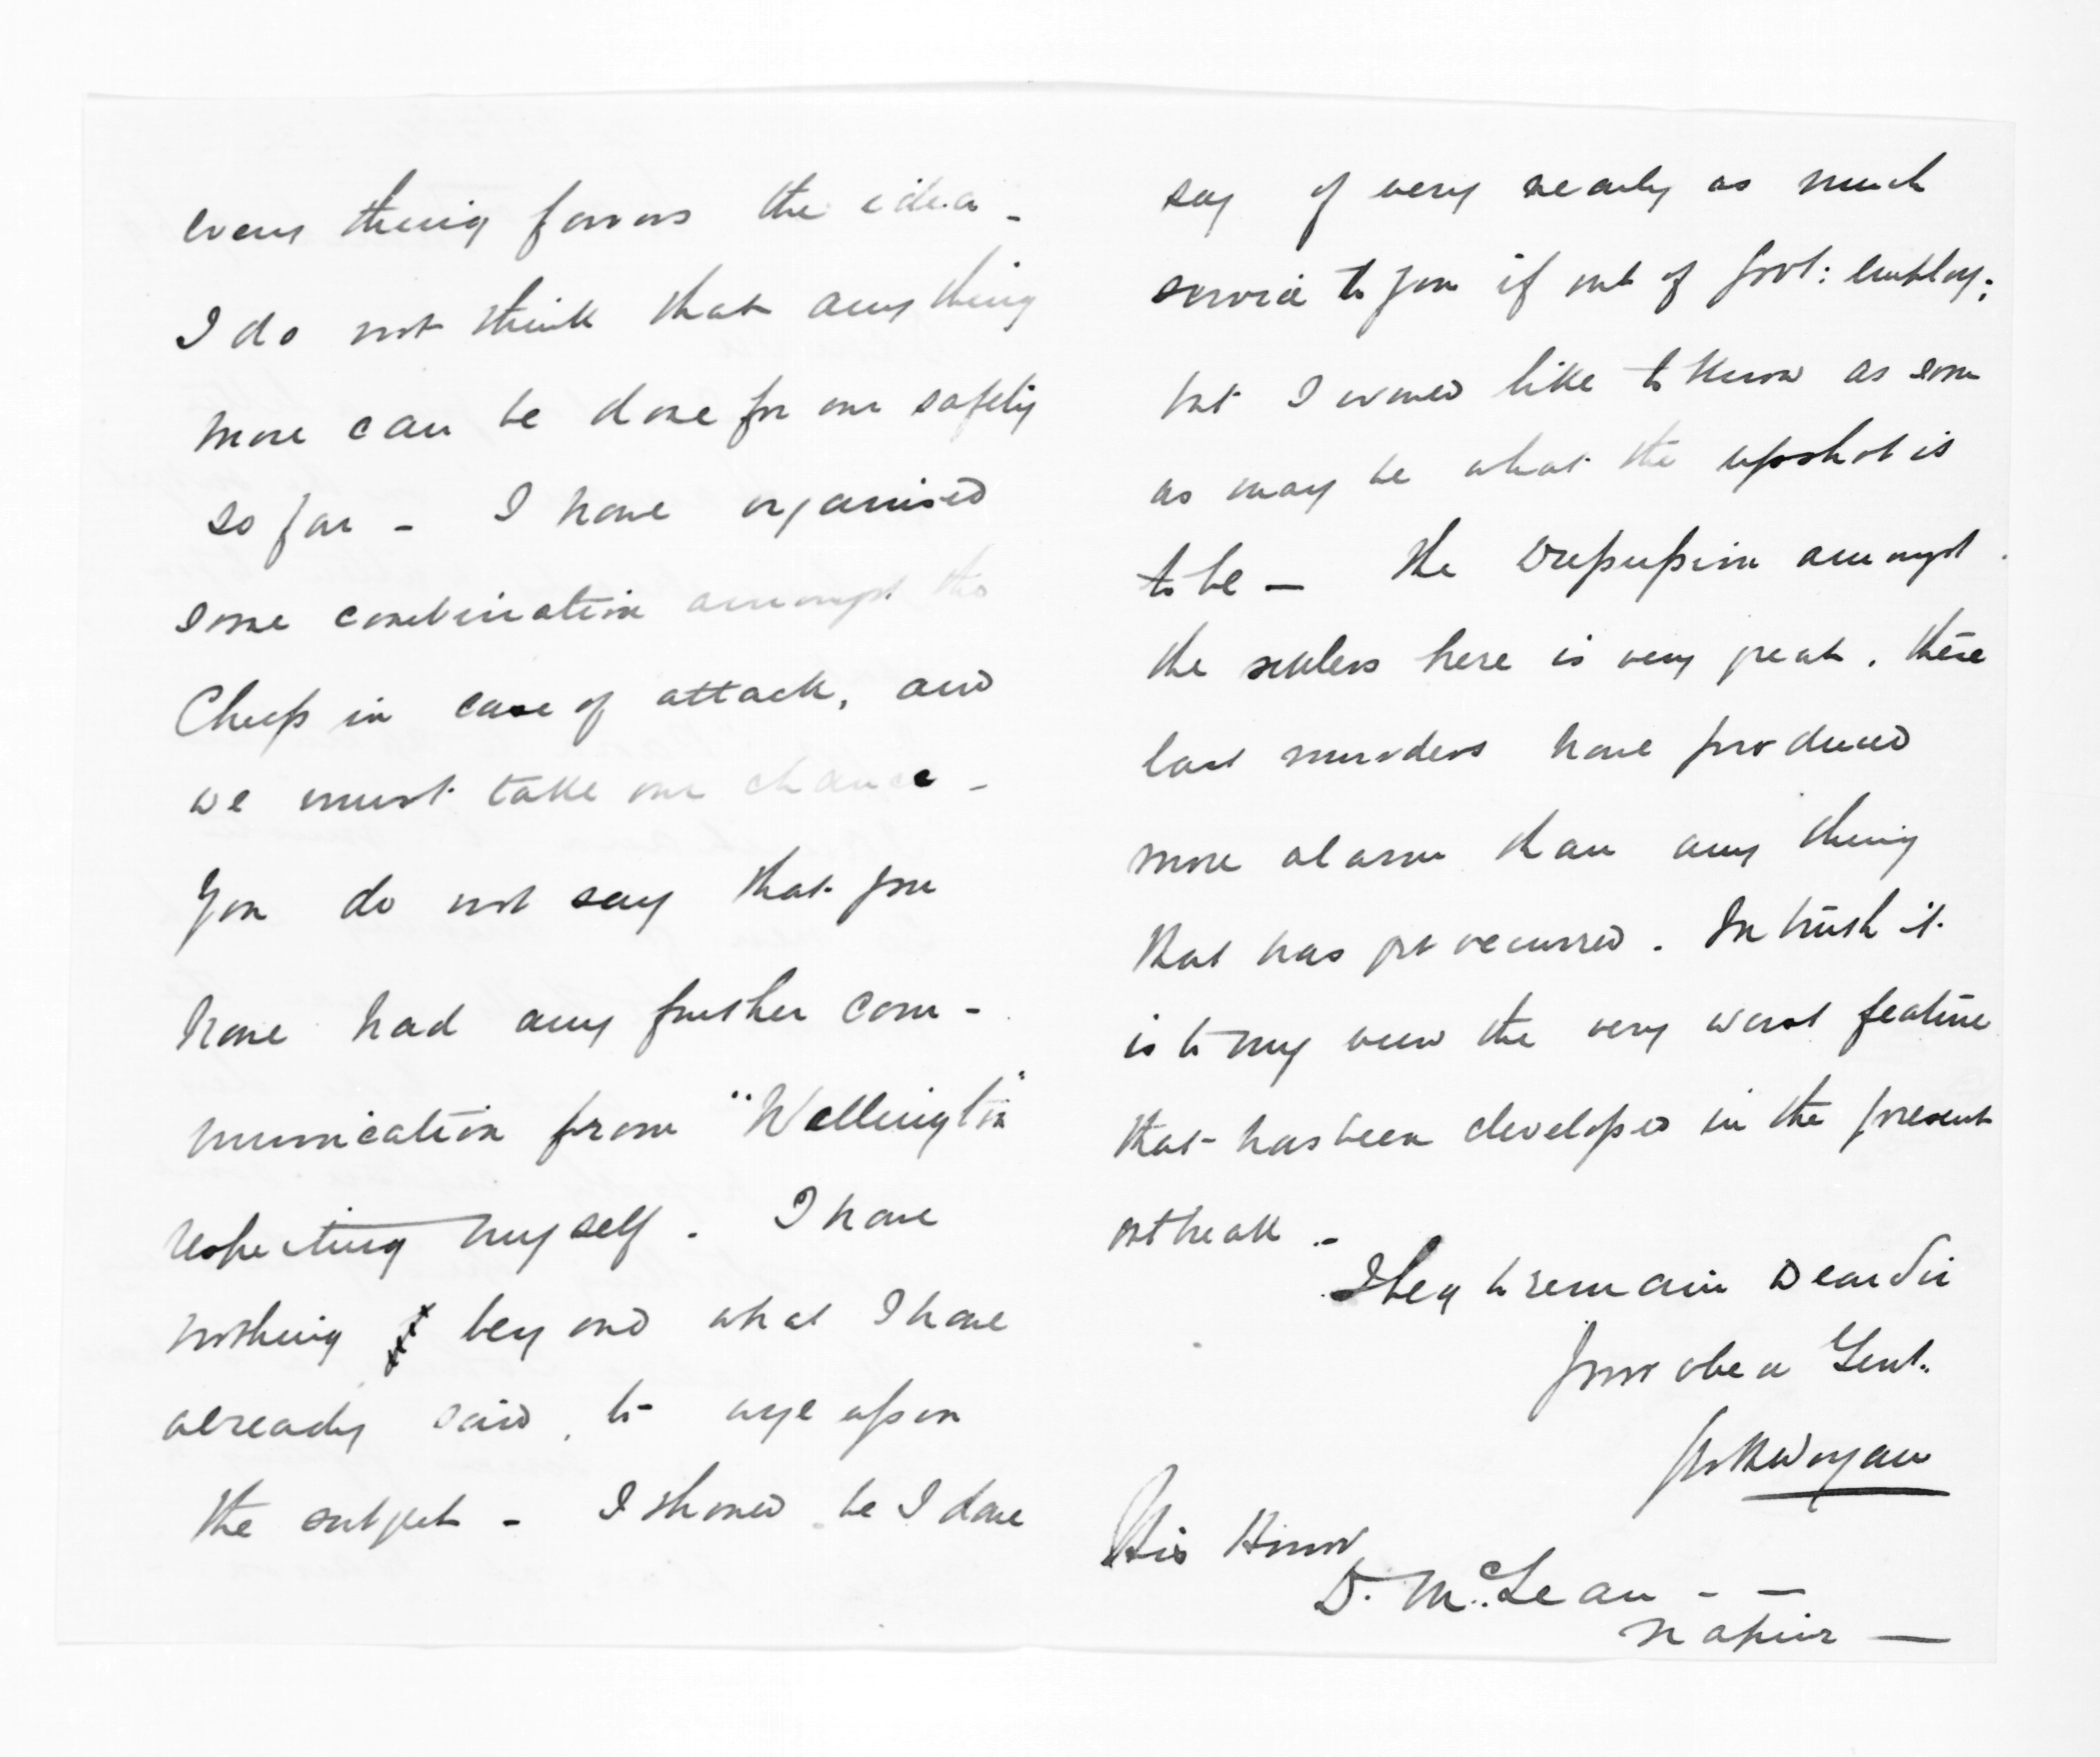 every thing favors the idea -
I do not think that any thing
more can be done for our safety
so far - I have organised
some combination amongst the
Chiefs in case of attack, and
we must take our chance -
You do not say that you
have had any further com-
munication from "Wellington"
respecting myself. I have
nothing beyond what I have
already said, to urge upon
the subject - I should be I dare
say of very nearly as much
service to you if out of Govt: employ;
but I would like to know as soon
as may be what the upshot is
to be - The Depression amongst
the settlers here is very great. these
last murders have produced
more alarm than any thing
that has yet occurred. In truth it
is to my view the very worst feature
that has been developed in the present
outbreak -
I beg to remain Dear Sir
your obed Servt.
His Honor
D. McLean - -
Napier -